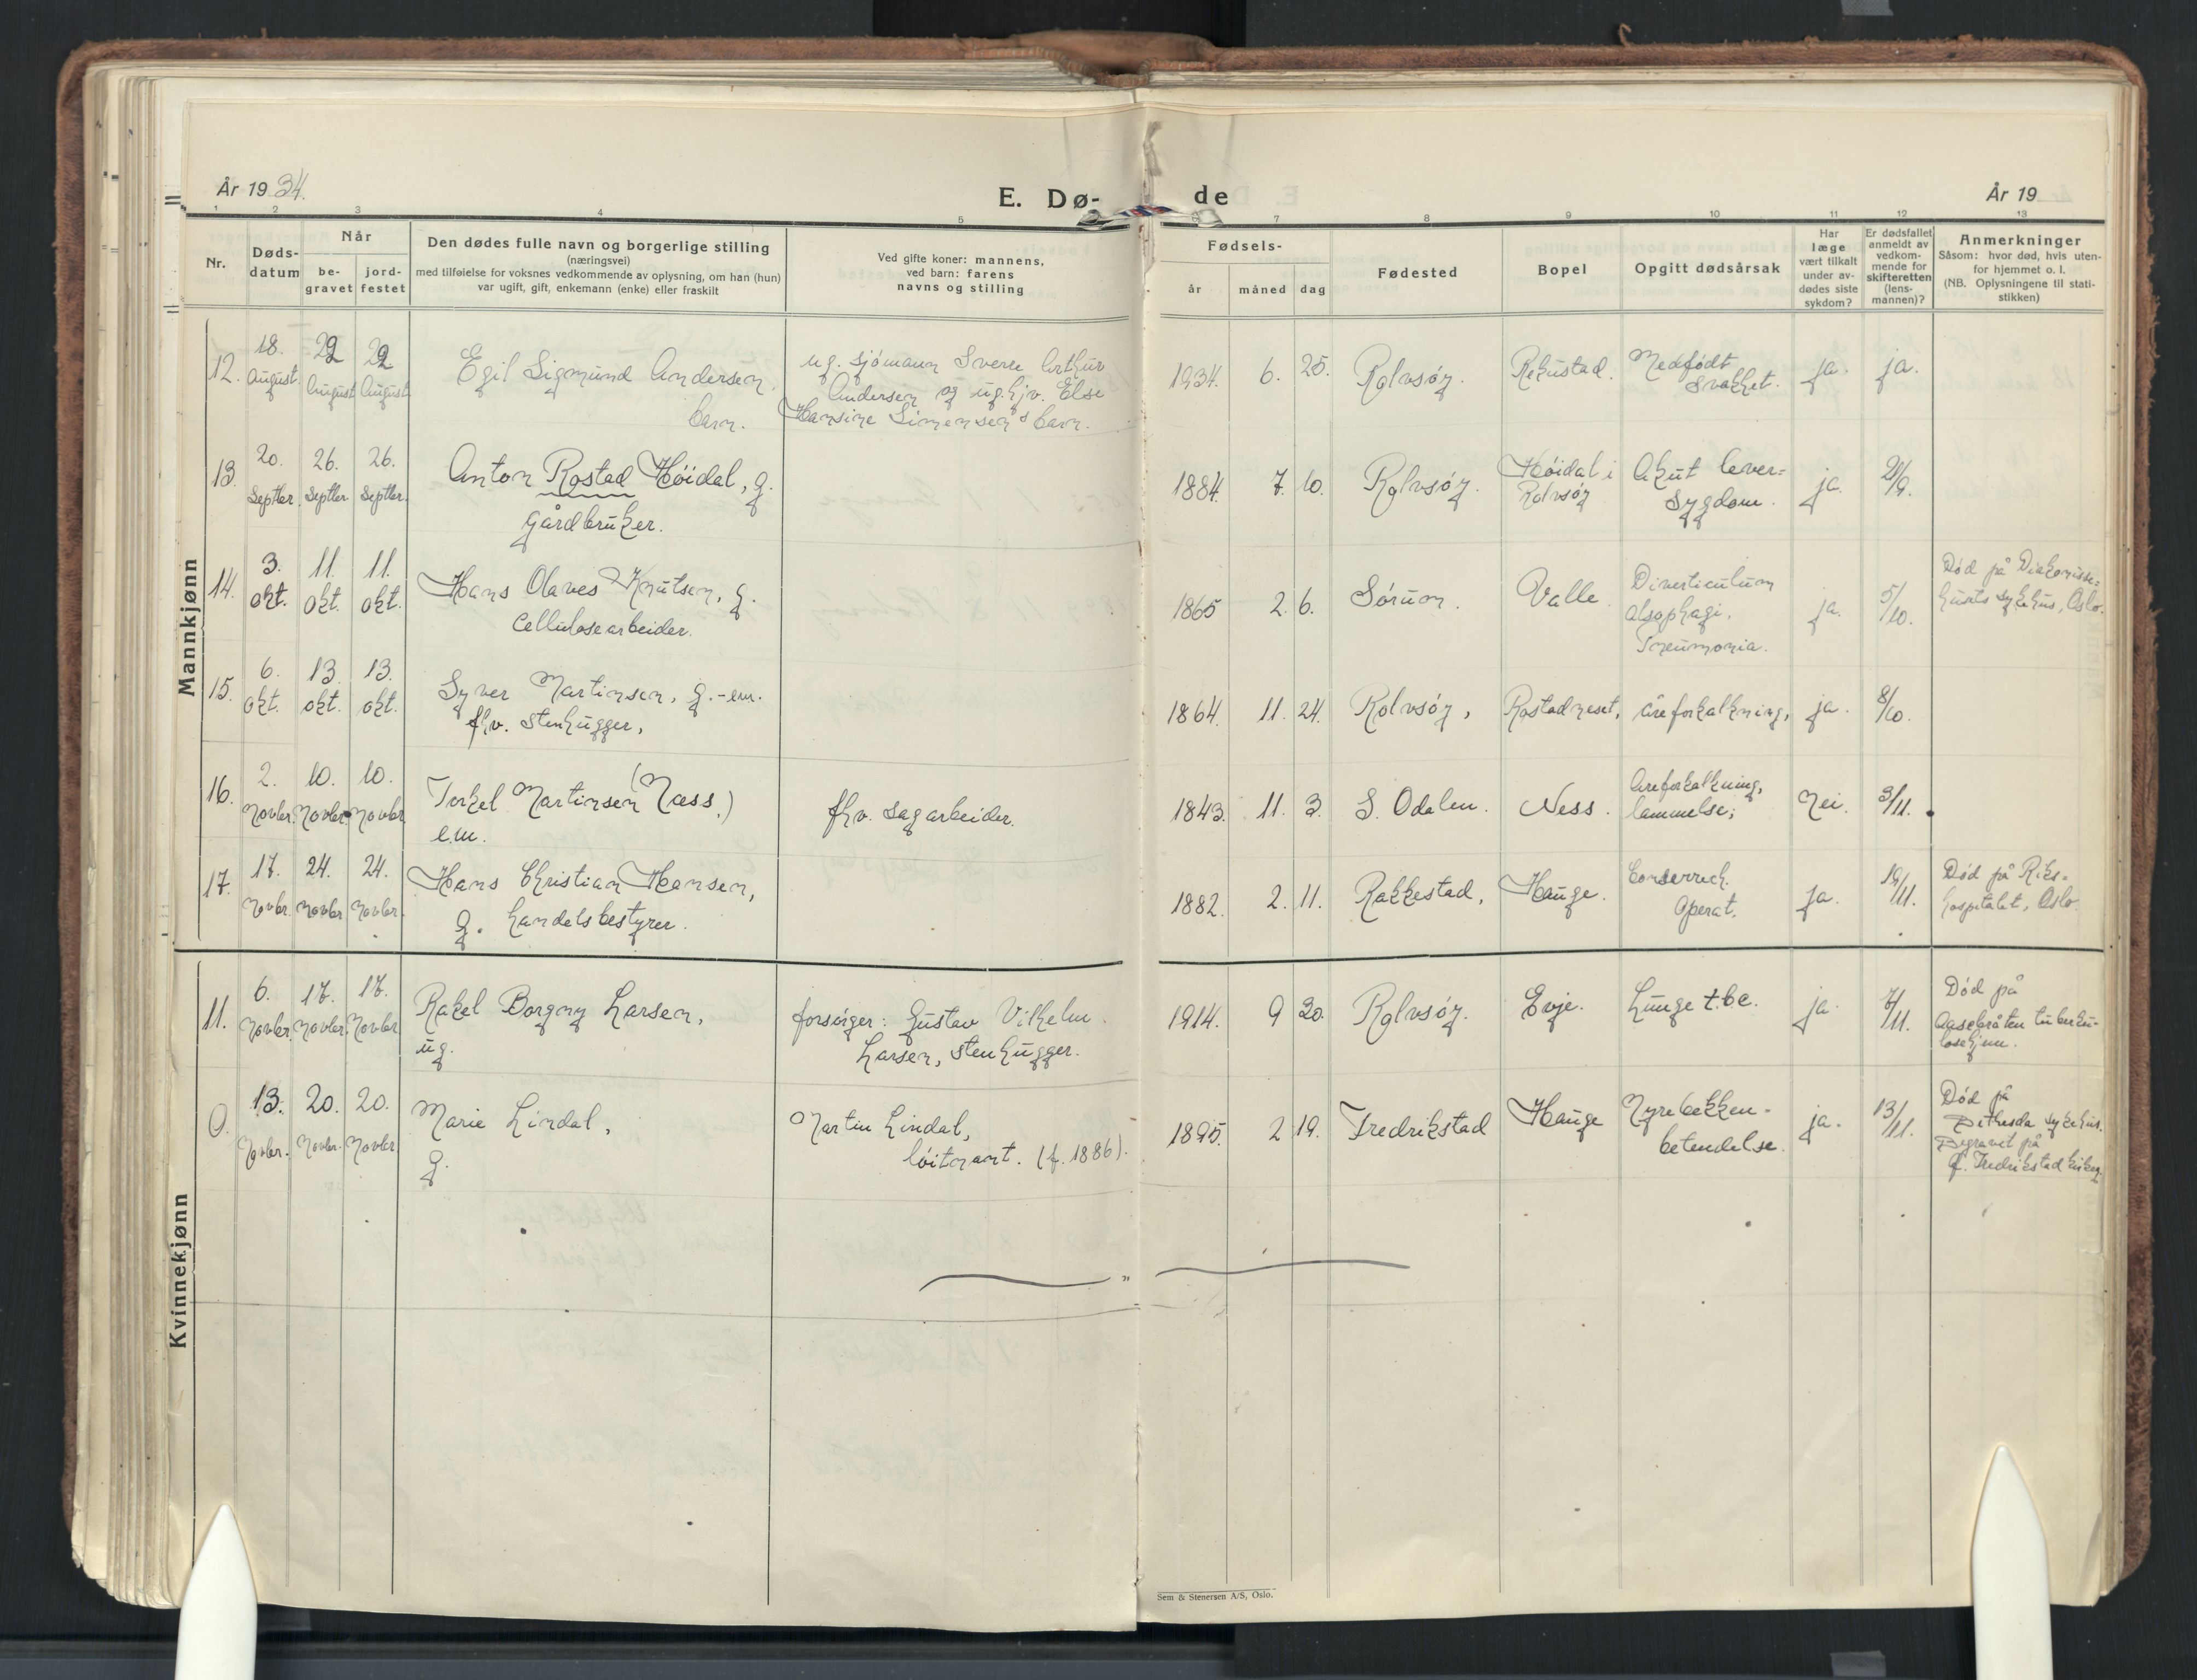 År 1934.
E. Dø-
de
År 19
1 2 3 4 5 6 7 8 9 10 11 12 13
Nr.
Døds-
datum
Når
be-
gravet
jord-
festet
Den dødes fulle navn og borgerlige stilling
(næringsvei)
med tilføielse for voksnes vedkommende av oplysning, om han (hun)
var ugift, gift, enkemann (enke) eller fraskilt
Ved gifte koner: mannens,
ved barn: farens
navns og stilling
Fødsels-
år måned dag
Fødested
Bopel
Opgitt dødsårsak
Har
læge
vært tilkalt
under av-
dødes siste
sykdom?
Er dødsfallet
anmeldt av
vedkom-
mende for
skifteretten
(lens-
mannen)?
Anmerkninger
Såsom: hvor død, hvis uten-
for hjemmet o. l.
(NB. Oplysningene til stati-
stikken)
Mannkjønn
12. 18. August. 22 August 22 August
Egil Sigmund Andersen
barn.
ug. sjömann Sverre Arthur
Andersen og ug. hjv. Else
Hansine Simensen's barn.
1934. 6. 25. Rolvsøy. Rekustad. Medfødt
svakhet. ja. ja.
13. 20. Septbr. 26. Septbr. 26. Septbr.
Anton Rostad Höidal, g.
gårdbruker.
1884. 7. 10. Rolvsøy. Höidal i
Rolvsøy
Akut lever=
sygdom. ja. 21/9.
14. 3. okt. 11. okt. 11. okt.
Hans Olaves Knutsen, g.
Cellulosearbeider.
1865 2. 6. Sørum. Valle.
Diverticulum
øsophagi,
Pneumonia.
ja. 5/10.
Død på Diakonisse=
husets sykehus, Oslo.
15. 6. okt. 13. okt. 13. okt.
Syver Martinsen, g.-em.
fhv. stenhugger,
1864. 11. 24. Rolvsøy, Rostadneset, åreforkalkning, ja. 8/10.
16. 2. Novbr. 10. Novbr. 10. Novbr.
Torkel Martinsen (Næss.)
em.
fhv. sagarbeider.
1843. 11. 3. S. Odalen. Ness.
Åreforkalkning,
lammelse; Nei. 3/11.
17. 17. Novbr. 24. Novbr. 24. Novbr.
Hans Christian Hansen,
g. handelsbestyrer.
1882. 2. 11. Rakkestad, Hauge.
operat. ja. 19/11.
Død på Riks=
hospitalet, Oslo.
Kvinnekjønn
11. 6. Novbr. 17. Novbr. 17. Novbr.
Rakel Borgny Larsen,
ug.
forsörger: Gustav Vilhelm
Larsen, stenhugger.
1914. 9 30. Rolvsøy. Evje. Lunge t.b.c. ja. 7/11.
Død på
Aasebråten tuberku-
losehjem.
0. 13. Novbr. 20. Novbr. 20. Novbr.
Marie Lindal,
g.
Martin Lindal,
löitnant. (f. 1886).
1895. 2 19. Fredrikstad Hauge
Nyrebekken-
betendelse. ja. 13/11.
Død på
Bethesda sykehus.
Begravet på
Sem & Stenersen A/S, Oslo.